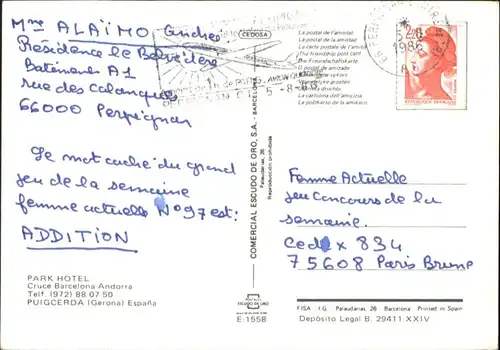 Mme ALAÏMO Andrée
Résidence le Belvédère
Batiment A1
rue des calanques
66000 Perpignan
Le mot caché du grand
jeu de la semaine
femme actuelle N°97 est:
ADDITION
PARK HOTEL
Cruce Barcelona Andorra
Telf. (972) 88 07 50
PUIGCERDA (Gerona) España
CEDOSA
COMERCIAL ESCUDO DE ORO, S.A. - BARCELONA
Palaudarias, 26
Reproducción prohibida
ESCUDO DE ORO
E-1558
La postal de l'amistat
La postal de la amistad
La carte postale de l'amitié
The friendship post card
Die Freundschaftskarte
O postal de amizade
Vriendschappelijke postkaart
La cartolina dell'amicizia
5-8
1986
2,20
REPUBLIQUE FRANÇAISE
Femme Actuelle
jeu concours de la
semaine.
Cedex 834
75608 Paris Brune
FISA I.G. Palaudarias, 26 Barcelona Printed in Spain
Depósito Legal B. 29411-XXIV